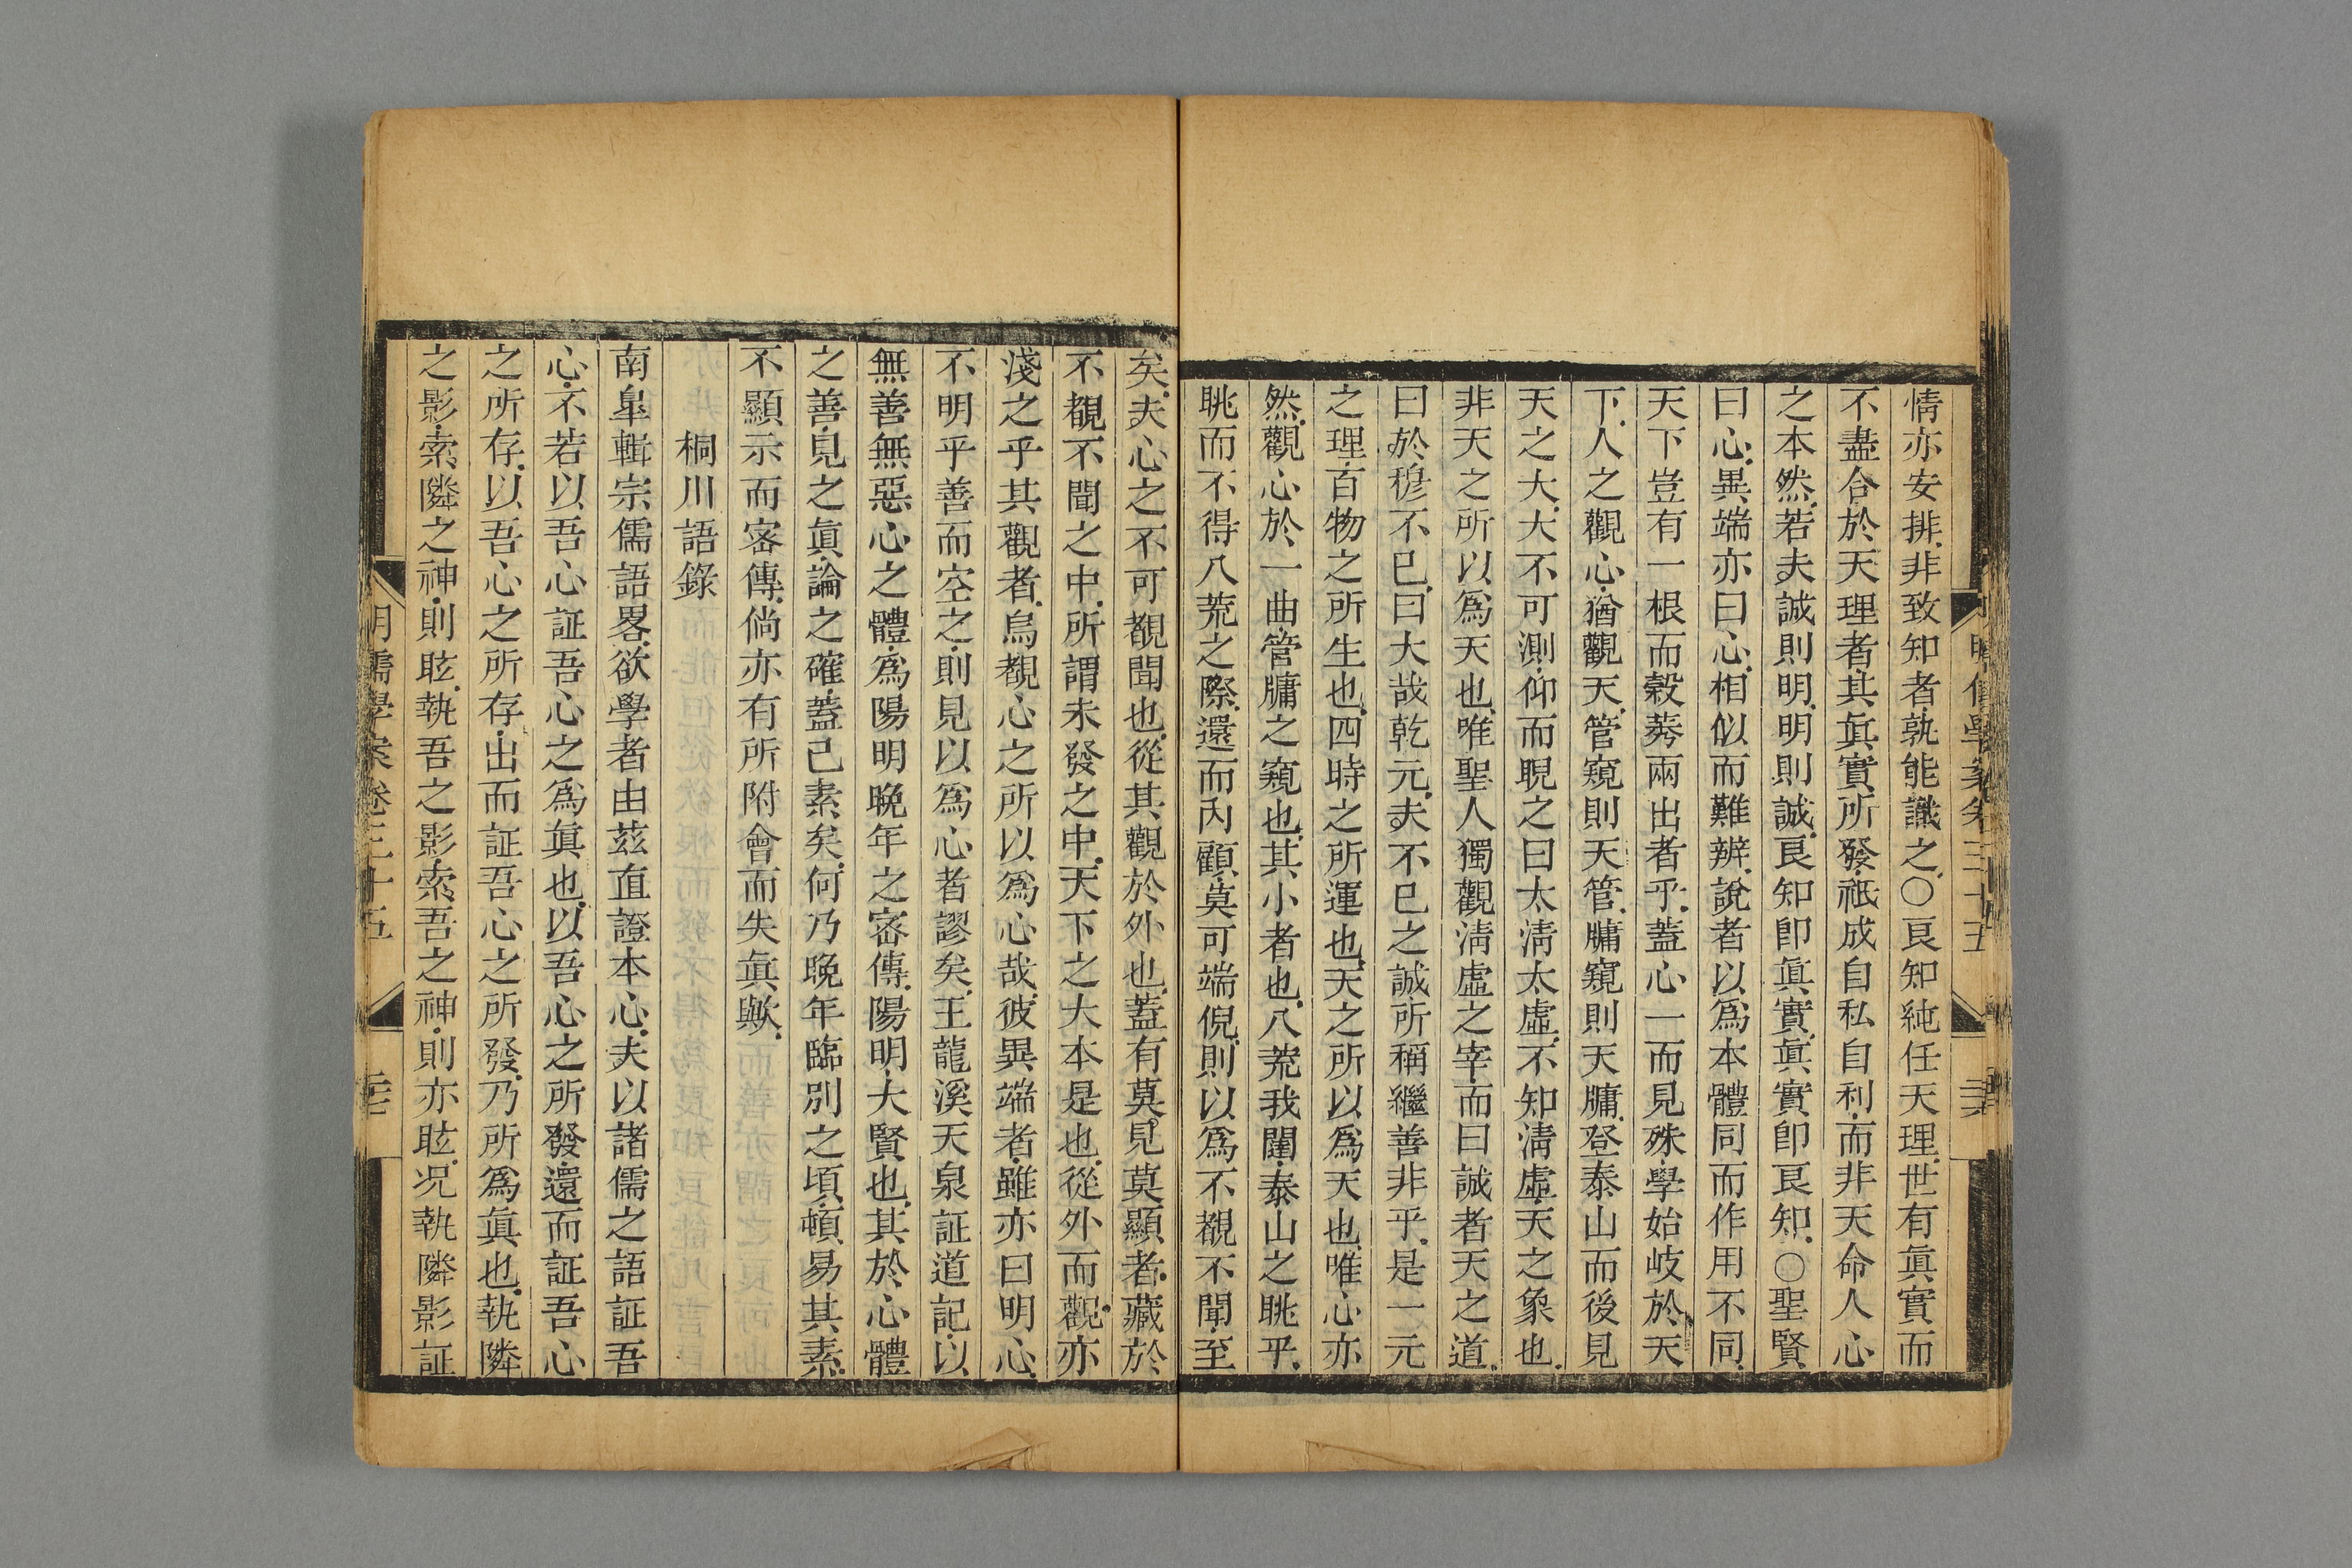 明儒學案卷三十五
情亦安排.非致知者孰能識之.○良知純任天理.世有眞實而
不盡合於天理者.其眞實所發.祇成自私自利.而非天命人心
之本然.若夫誠則明.明則誠.良知卽眞實.眞實卽良知.○聖賢
曰心.異端亦曰心.相似而難辨.說者以爲本體同而作用不同.
天下豈有一根而穀莠兩出者乎.蓋心一而見殊.學始岐於天
下.人之觀心.猶觀天.管窺則天管.牖窺則天牖.登泰山而後見
天之大.大不可測.仰而睨之曰太淸太虛.不知淸虛.天之象也.
非天之所以爲天也.唯聖人獨觀淸虛之宰.而曰誠者天之道.
曰於穆不已.曰大哉乾元.夫不已之誠所稱繼善非乎.是一元
之理.百物之所生也.四時之所運也.天之所以爲天也.唯心亦
然.觀心於一曲.管牖之窺也.其小者也.八荒我闥.泰山之眺乎.
眺而不得八荒之際.還而內顧.莫可端倪.則以爲不覩不聞.至
矣.夫心之不可覩聞也.從其觀於外也.蓋有莫見莫顯者.藏於
不覩不聞之中.所謂未發之中.天下之大本是也.從外而觀.亦
淺之乎其觀者.烏覩心之所以爲心哉.彼異端者.雖亦曰明心.
不明乎善而空之.則見以爲心者謬矣.王龍溪天泉証道記.以
無善無惡心之體.爲陽明晚年之密傳.陽明.大賢也.其於心體
之善.見之眞.論之確.蓋已素矣.何乃晚年臨別之頃.頓易其素.
不顯示而密傳.倘亦有所附會而失眞歟.
桐川語錄
南臯輯宗儒語畧.欲學者由茲直證本心.夫以諸儒之語証吾
心.不若以吾心証吾心之爲眞也.以吾心之所發.還而証吾心
之所存.以吾心之所存.出而証吾心之所發.乃所爲眞也.執隣
之影.索隣之神.則眩.執吾之影.索吾之神.則亦眩.况執隣影証
明儒學案卷三十五